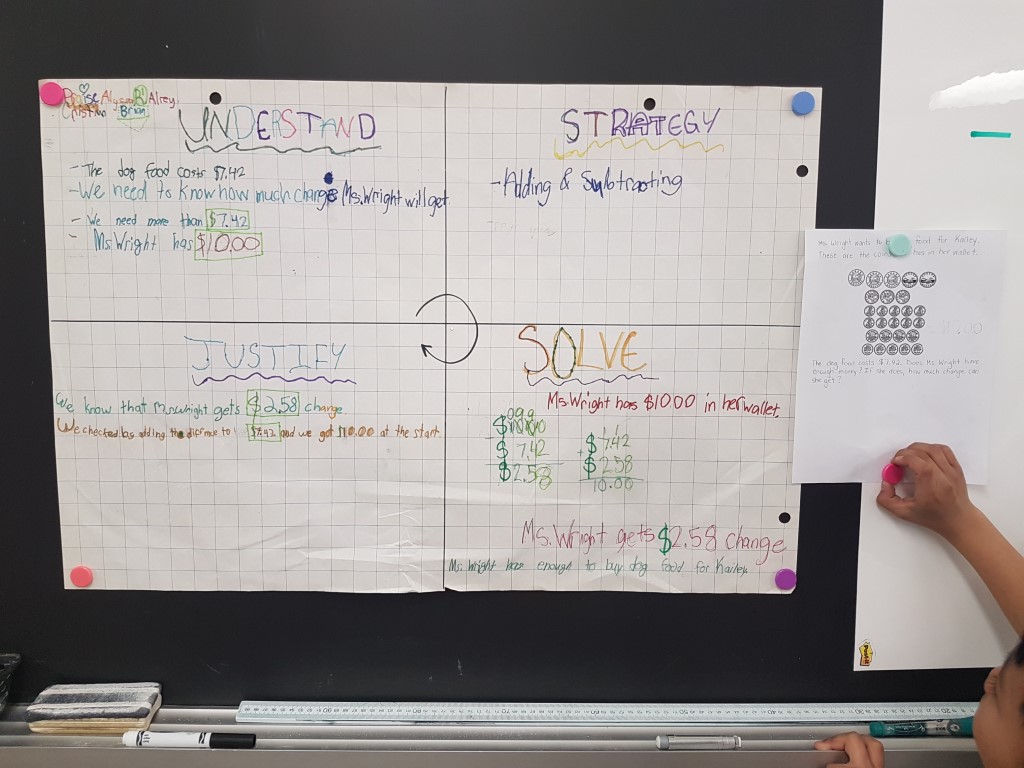 Praise Alyssa Alrey
Cristian Brian
UNDERSTAND
- The dog food costs $7.42
- We need to know how much change Ms.Wright will get.
- We need more than $7.42
- Ms.Wright has $10.00
STRATEGY
- Adding & Subtracting
JUSTIFY
We know that Ms.wright gets $2.58 change
We checked by adding the to $7.42 and we got $10.00 at the start.
SOLVE
Ms.Wright has $10.00 in her wallet.
09.9
$10.00
$ 7.42
$2.58
1 1
$ 7.42
+ $ 2.58
10.00
Ms.Wright gets $2.58 change
Ms. Wright have enough to buy dog food for Kailey.
Ms. Wright wants to food for Kailey.
These are the has in her wallet.
The dog food costs $7.42. Does Ms. Wright have
enough money? If she does, how much change can
she get?
Post-it